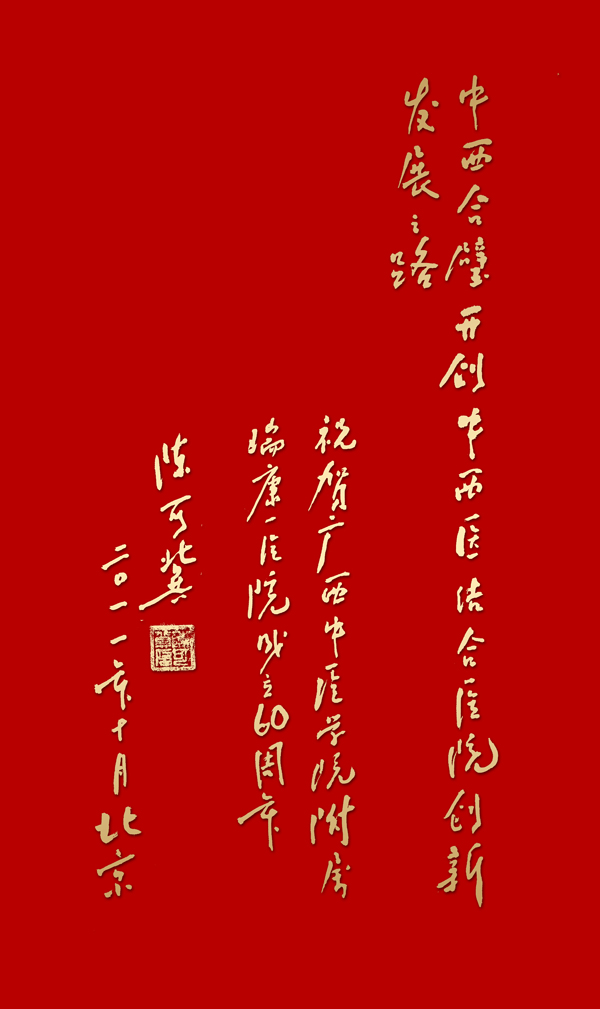 中西合璧开创中西医结合医院创新
发展之路
祝贺广西中医学院附属
瑞康医院成立60周年
陈可冀
二〇一一年十月北京